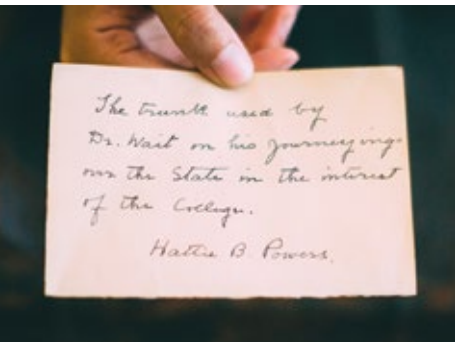 The trunk used by
Dr. Wait on his journeyings
over the State in the interest
of the College.
Hattie B. Powers.